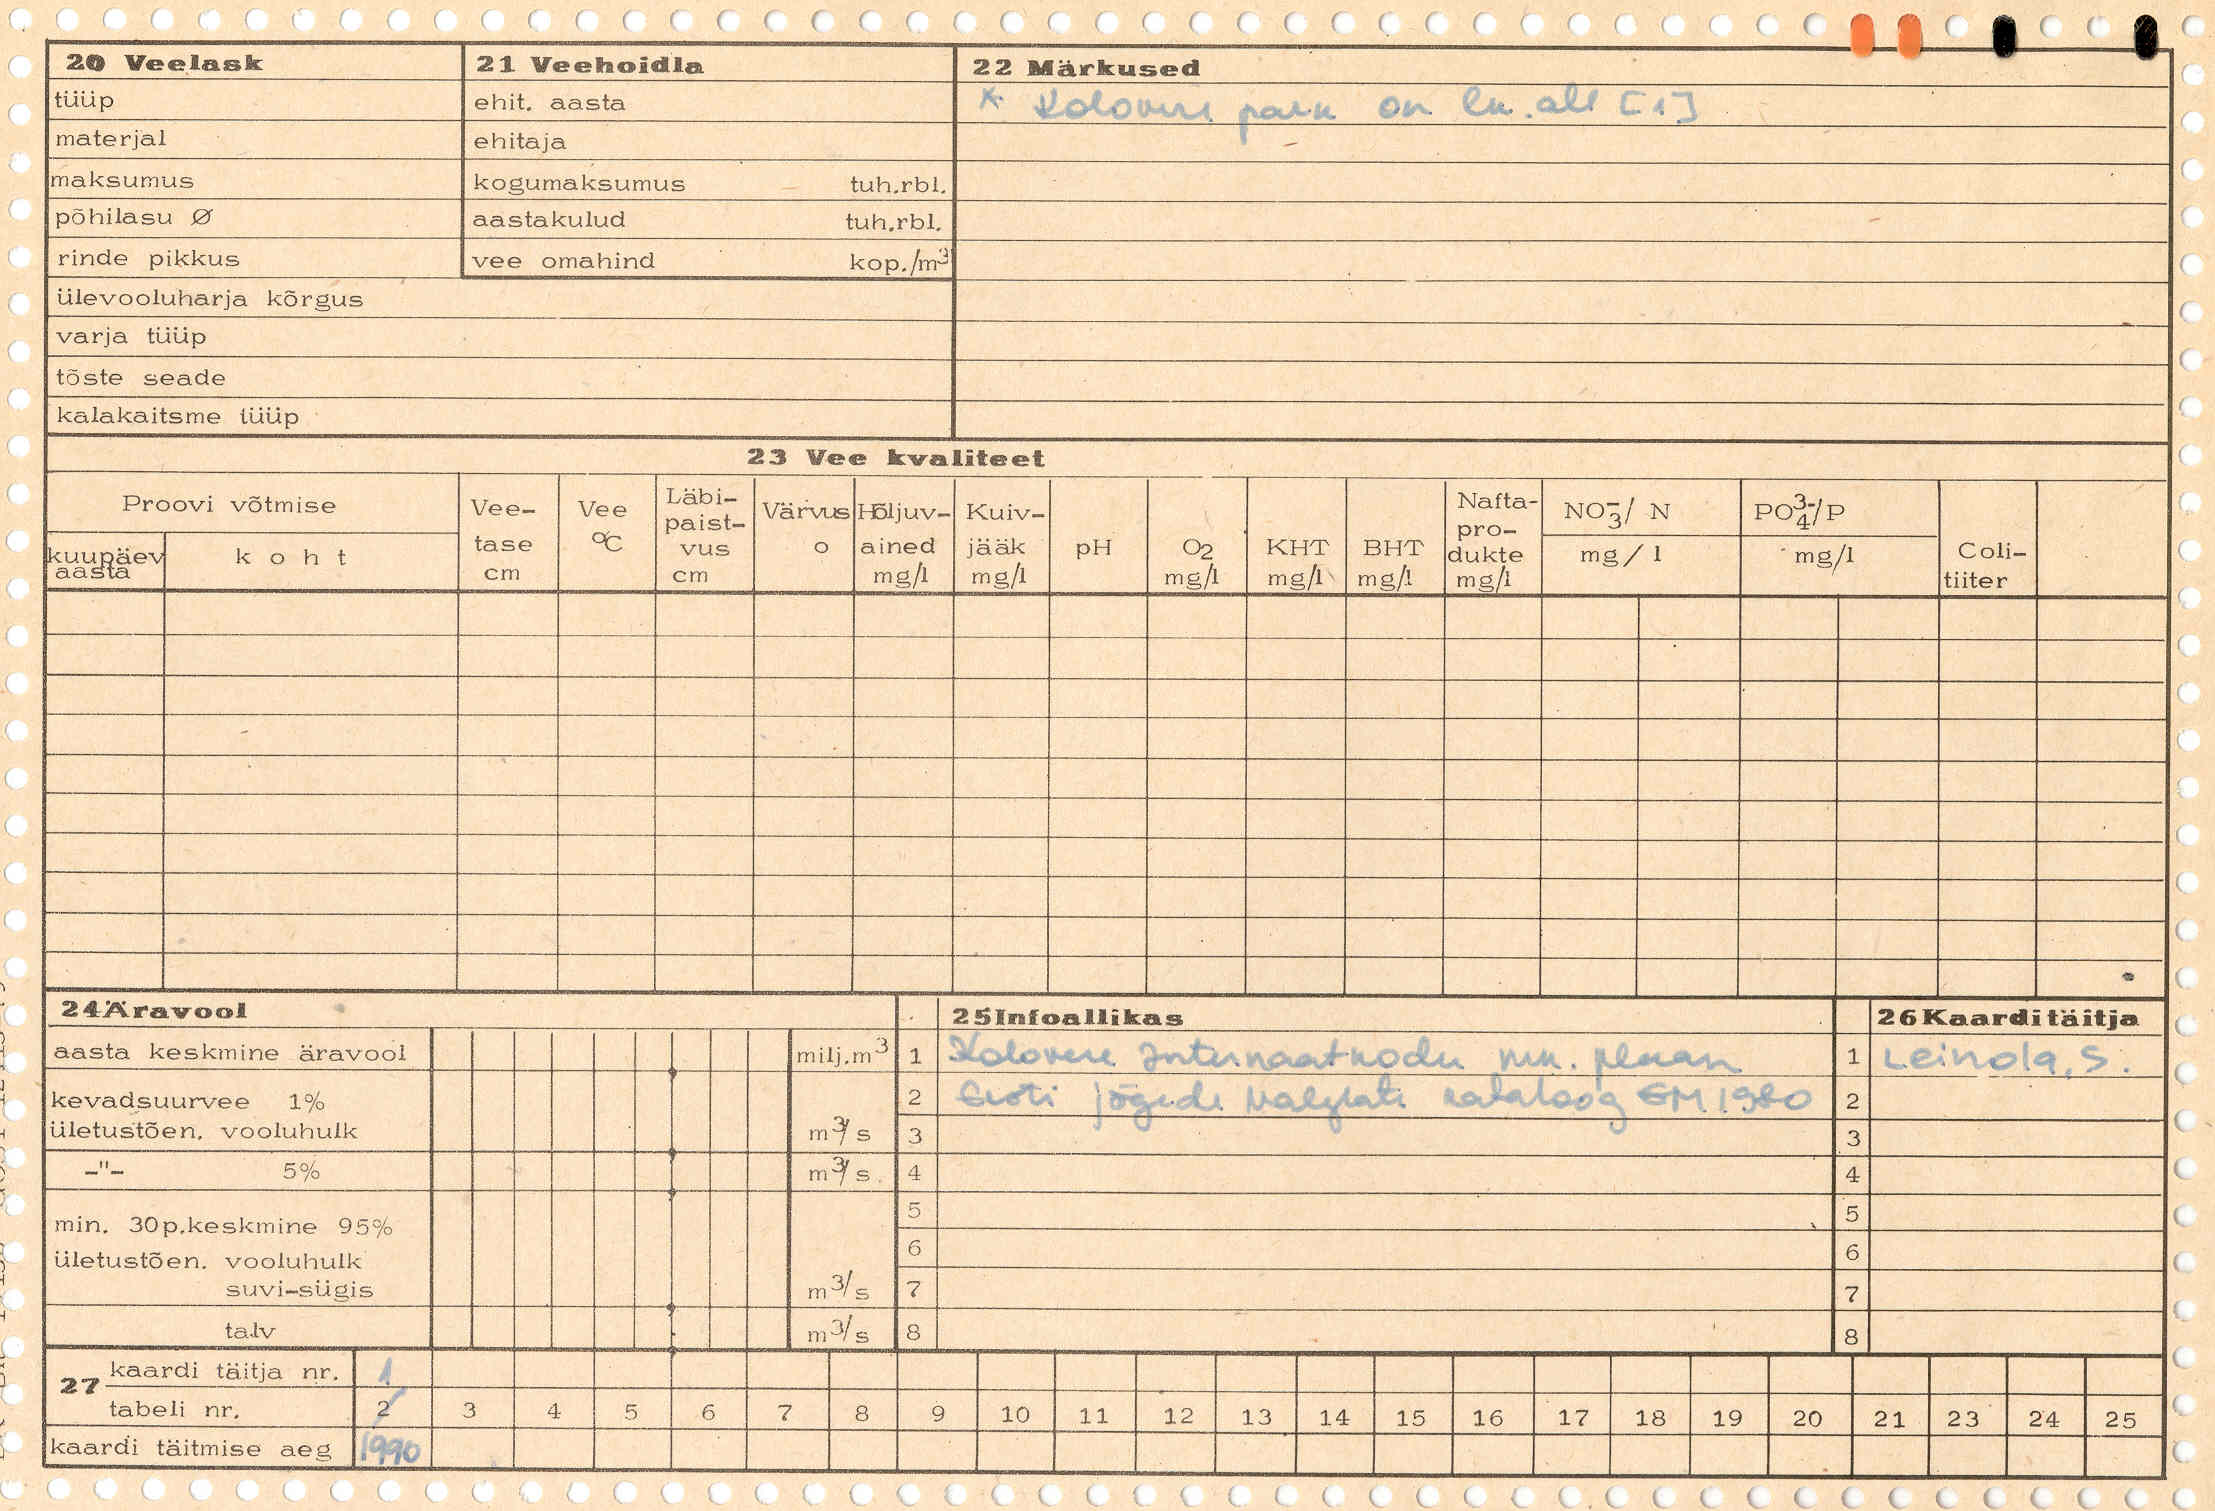 20 Veelask
tüüp
materjal
maksumus
põhilasu Ø
rinde pikkus
ülevooluharja kõrgus
varja tüüp
tõste seade
kalakaitsme tüüp
21 Veehoidla
ehit. aasta
ehitaja
kogumaksumus tuh.rbl.
aastakulud tuh.rbl.
vee omahind kop./m3
22 Märkused
* Kolovere park on lk. all [1]
23 Vee kvaliteet
Proovi võtmise
kuupäev
aasta
koht
Vee-
tase
cm
Vee
°C
Läbi-
paist-
vus
cm
Värvus
o
Hõljuv-
ained
mg/l
Kuiv-
jääk
mg/l
pH
O2
mg/l
KHT
mg/l
BHT
mg/l
Nafta-
pro-
dukte
mg/l
NO3-/ N
mg/l
PO43-/P
mg/l
Coli-
tiiter
24 Äravool
aasta keskmine äravool milj.m3
kevadsuurvee 1%
ületustõen. vooluhulk m3/s
-"- 5% m3/s
min. 30p.keskmine 95%
ületustõen. vooluhulk
suvi-sügis m3/s
talv m3/s
25 Infoallikas
1 Kolovere Internaatkodu plaan
2 Eesti jõgede kataloog EM 1980
3
4
5
6
7
8
26 Kaarditäitja
1 Leinola, S.
2
3
4
5
6
7
8
27
kaardi täitja nr. 1
tabeli nr. 2 3 4 5 6 7 8 9 10 11 12 13 14 15 16 17 18 19 20 21 23 24 25
kaardi täitmise aeg 1990